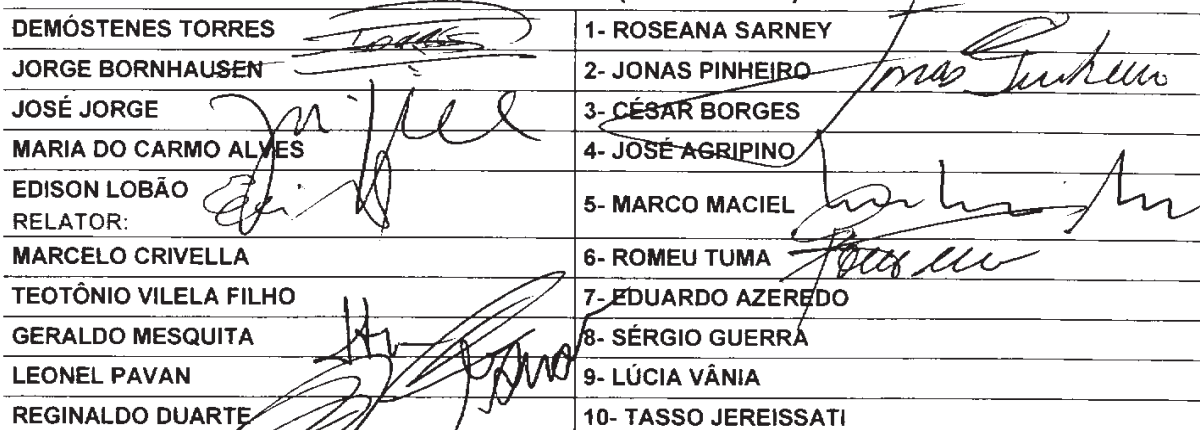 DEMÓSTENES TORRES
1- ROSEANA SARNEY
JORGE BORNHAUSEN
2- JONAS PINHEIRO
Jonas Pinheiro
JOSÉ JORGE
3- CÉSAR BORGES
MARIA DO CARMO ALVES
4- JOSÉ AGRIPINO
EDISON LOBÃO
RELATOR:
5- MARCO MACIEL
MARCELO CRIVELLA
6- ROMEU TUMA
TEOTÔNIO VILELA FILHO
7- EDUARDO AZEREDO
GERALDO MESQUITA
8- SÉRGIO GUERRA
LEONEL PAVAN
9- LÚCIA VÂNIA
REGINALDO DUARTE
10- TASSO JEREISSATI